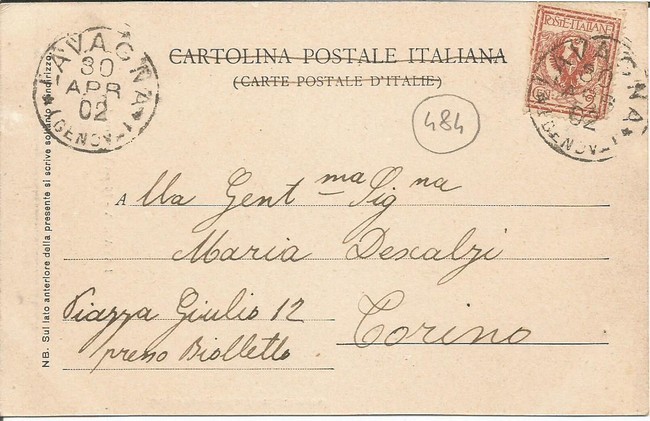 CARTOLINA POSTALE ITALIANA
(CARTE POSTALE D'ITALIE)
LAVAGNA
30
APR
02
(GENOVA)
POSTE ITALIANE
LAVAGNA
30
APR
02
(GENOVA)
484
Alla Gent ma Sig na
Maria Descalzi
Piazza Giulio 12
Torino
presso Biolletto
NB. Sul lato anteriore della presente si scrive soltanto l'indirizzo.